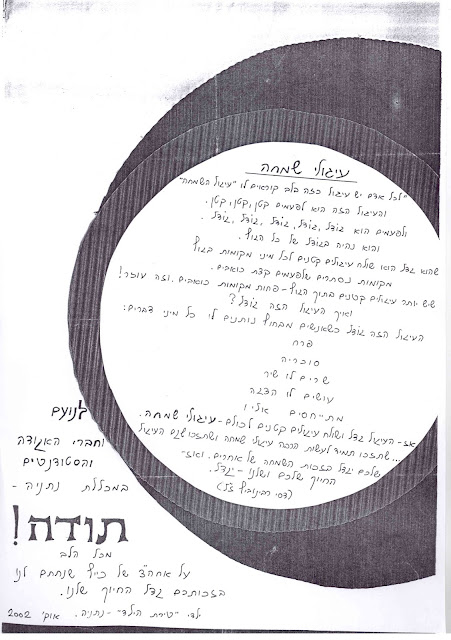 עיגולי שמחה
"לכל אדם יש עיגול כזה בלב קוראים לו "עיגול השמחה"
והעיגול הזה הוא לפעמים קטן, קטן, קטן.
ולפעמים הוא גודל, גודל, גודל, גודל, גודל.
והוא נהיה בגודל של כל הגוף.
שהוא גדל הוא שולח עיגולים קטנים לכל מיני מקומות בגוף
מקומות נסתרים שלפעמים קצת כואבים.
שיש יותר עיגולים קטנים בתוך הגוף - פחות מקומות כואבים. וזה עוזר!
ואיך העיגול הזה גודל?
העיגול הזה גודל כשאנשים מבחוץ נותנים לו כל מיני דברים:
פרח
סוכריה
שרים לו שיר
עושים לו הצגה
מתייחסים אליו
ואז- העיגול גדל ושולח עיגולים קטנים לכולם - עיגולי שמחה.
...שתזכו תמיד לעשות הרבה עיגולי שמחה ושתזכו שגם העיגול
שלכם יגדל בזכות השמחה של אחרים. ואז-
החיוך שלכם ושלנו - יגדל.
(דסי רבינוביץ ז"ל)
לנועם
וחברי האגודה
והסטודנטים
במכללת נתניה -
תודה!
מכל הלב
על אחה"צ של כייף שנתתם לנו
בזכותכם גדל החיוך שלנו.
ילדי "טירת הילד" - נתניה. אוק' 2002